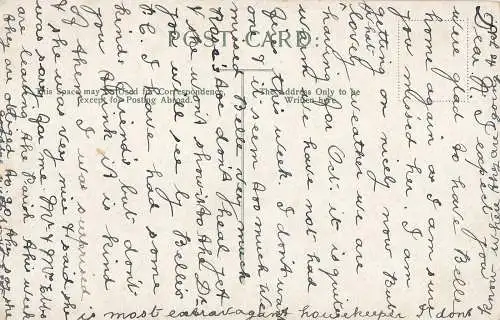 POST CARD.
This Space may be Used for Correspondence
(except for Posting Abroad.
The Address Only to be
Written here.
Dear M. I expect you very
were glad to have Belle
home again as I am sure
you missed her. I am
getting on nicely now. But
what
lovely weather we are
having for Oct. it is quite
warm we have not had
a fire this week. I don't want
one & it seem so much
miss Belle very much
don't heal yet
& she won't show it to the Dr
you will see by Belle's
P.C. I have had some
kind friends but don't
you think it is kind
of them. I was surprised
& she was very nice & said she
was sorry for me. Mr & Mrs Ellis
are leaving the this week
they are obliged to go. they say she
is most extravagant housekeeper I dont